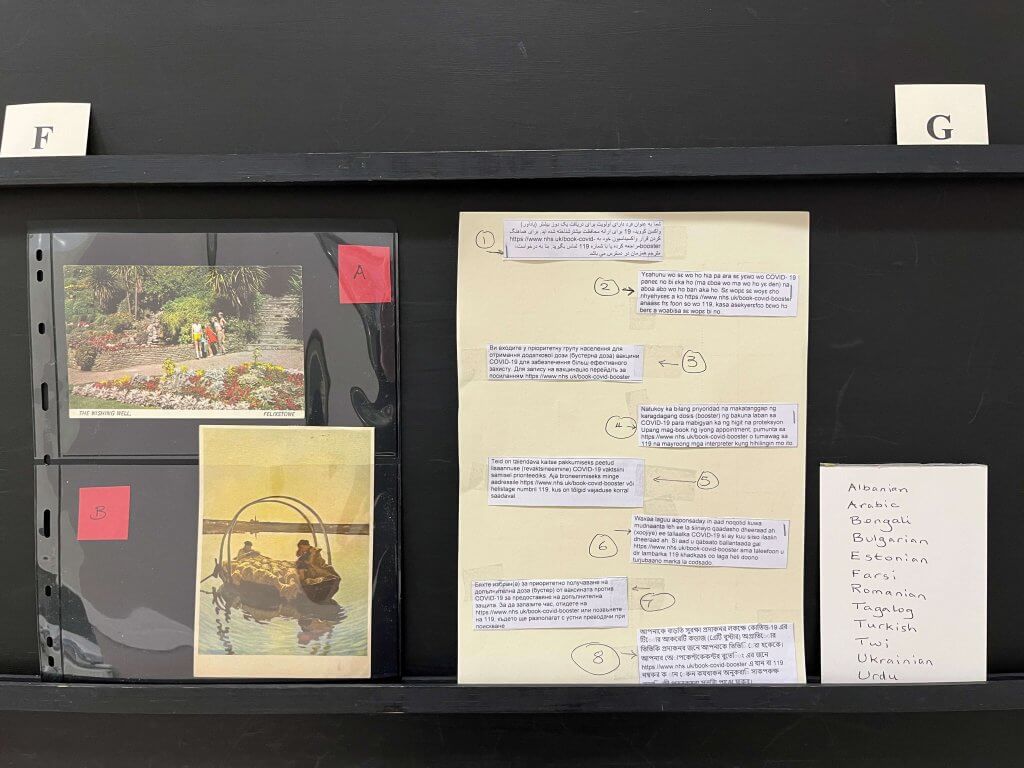 F
G
A
THE WISHING WELL,
FELIXSTONE
B
1
شما به عنوان فرد دارای اولویت برای دریافت یک دوز بیشتر (یادآور)
واکسن کووید- 19 برای ارائه محافظت بیشتر شناخته شده اید. برای هماهنگ
کردن قرار واکسیناسیون خود به https://www.nhs.uk/book-covid-
booster مراجعه کرده یا با شماره 119 تماس بگیرید. بنا به درخواست،
مترجم همزمان در دسترس می باشد
2
Ysahunu wo sɛ wo ho hia pa ara sɛ yɛwo wo COVID-19
paneɛ no bi ɛka ho (ma ɛboa wo ma wo ho yɛ den) na
aboa abɔ wo ho ban aka ho. Sɛ wopɛ sɛ woyɛ ɛho
nhyehyɛeɛ a kɔ https://www.nhs.uk/book-covid-booster
anaasɛ frɛ foon so wɔ 119, kasa asekyerɛfoɔ bɛwɔ hɔ
berɛ a woabisa sɛ wopɛ bi no.
3
Ви входите у пріоритетну групу населення для
отримання додаткової дози (бустерна доза) вакцини
COVID-19 для забезпечення більш ефективного
захисту. Для запису на вакцинацію перейдіть за
посиланням https://www.nhs.uk/book-covid-booster
4
Natukoy ka bilang priyoridad na makatanggap ng
karagdagang dosis (booster) ng bakuna laban sa
COVID-19 para mabigyan ka ng higit na proteksyon.
Upang mag-book ng iyong appointment, pumunta sa
https://www.nhs.uk/book-covid-booster o tumawag sa
119 na mayroong mga interpreter kung hihilingin mo ito.
5
Teid on täiendava kaitse pakkumiseks peetud
lisaannuse (revaktsineerimine) COVID-19 vaktsiini
saamisel prioriteediks. Aja broneerimiseks minge
aadressile https://www.nhs.uk/book-covid-booster või
helistage numbril 119, kus on tõlgid vajaduse korral
saadaval.
6
Waxaa laguu aqoonsaday in aad noqotid kuwa
mudnaanta leh ee la siinayo qaadasho dheeraad ah
(xoojiye) ee tallaalka COVID-19 si ay kuu siiso ilaalin
dheeraad ah. Si aad u qabsato ballantaada gal
https://www.nhs.uk/book-covid-booster ama taleefoon u
dir lambarka 119 khadkaas oo laga heli doono
turjubaano marka la codsado.
7
Бяхте избран(а) за приоритетно получаване на
допълнителна доза (бустер) от ваксината против
COVID-19 за предоставяне на допълнителна
защита. За да запазите час, отидете на
https://www.nhs.uk/book-covid-booster или позвънете
на 119, където ще разполагат с устни преводачи при
поискване
8
আপনাকে বাড়তি সুরক্ষা প্রদানের লক্ষ্যে কোভিড-19 এর
https://www.nhs.uk/book-covid-booster এ যান বা 119
Albanian
Arabic
Bengali
Bulgarian
Estonian
Farsi
Romanian
Tagalog
Turkish
Twi
Ukrainian
Urdu